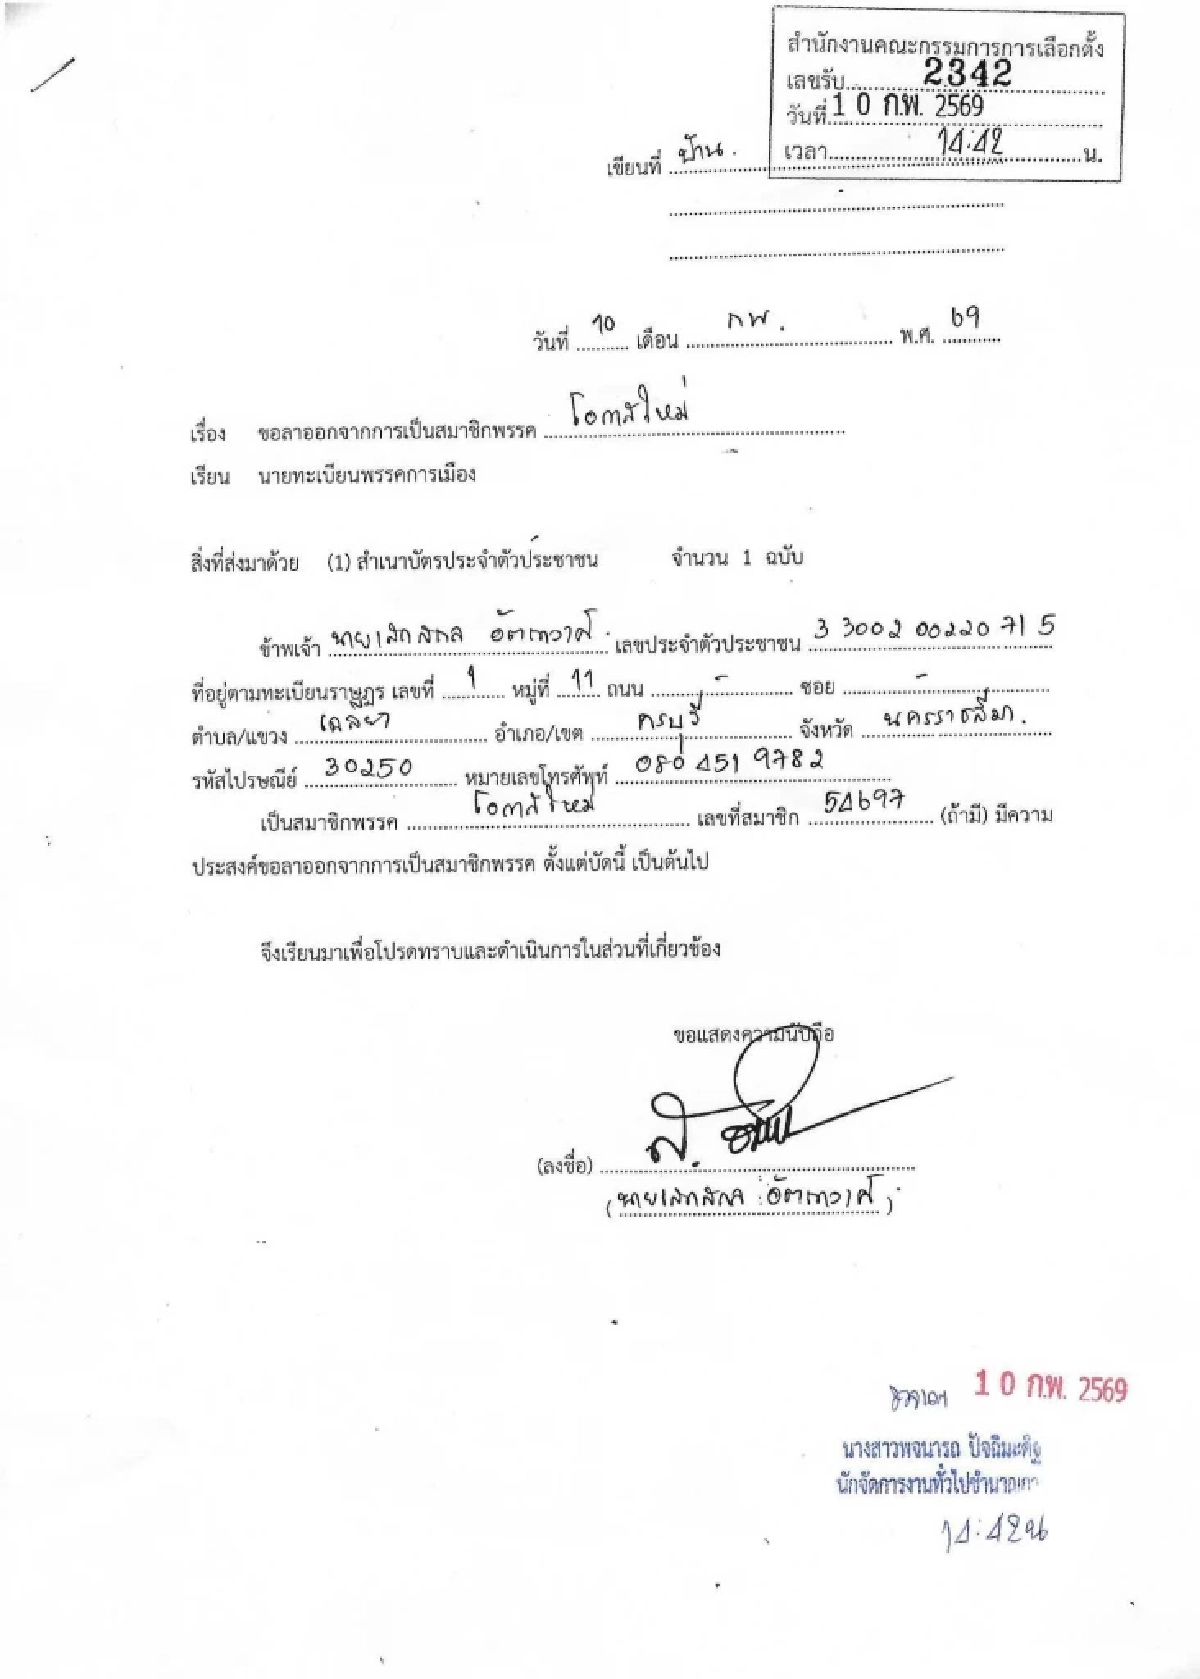 สำนักงานคณะกรรมการการเลือกตั้ง
เลขรับ 2342
วันที่ 10 ก.พ. 2569
เวลา 14:42 น.
เขียนที่ บ้าน.
วันที่ 10 เดือน กพ. พ.ศ. 69
เรื่อง ขอลาออกจากการเป็นสมาชิกพรรค โอกาสใหม่
เรียน นายทะเบียนพรรคการเมือง
สิ่งที่ส่งมาด้วย (1) สำเนาบัตรประจำตัวประชาชน จำนวน 1 ฉบับ
ข้าพเจ้า นายเสกสกล อัตถาวงศ์ เลขประจำตัวประชาชน 3 3002 00220 71 5
ที่อยู่ตามทะเบียนราษฎร เลขที่ 1 หมู่ที่ 11 ถนน - ซอย -
ตำบล/แขวง เฉลียง อำเภอ/เขต ครบุรี จังหวัด นครราชสีมา.
รหัสไปรษณีย์ 30250 หมายเลขโทรศัพท์ 080 451 9782
เป็นสมาชิกพรรค โอกาสใหม่ เลขที่สมาชิก 54697 (ถ้ามี) มีความ
ประสงค์ขอลาออกจากการเป็นสมาชิกพรรค ตั้งแต่บัดนี้ เป็นต้นไป
จึงเรียนมาเพื่อโปรดทราบและดำเนินการในส่วนที่เกี่ยวข้อง
ขอแสดงความนับถือ
(ลงชื่อ)
(นายเสกสกล อัตถาวงศ์)
10 ก.พ. 2569
นางสาวพจนารถ ปัจฉิมะดิฐ
นักจัดการงานทั่วไปชำนาญการ
14:42น